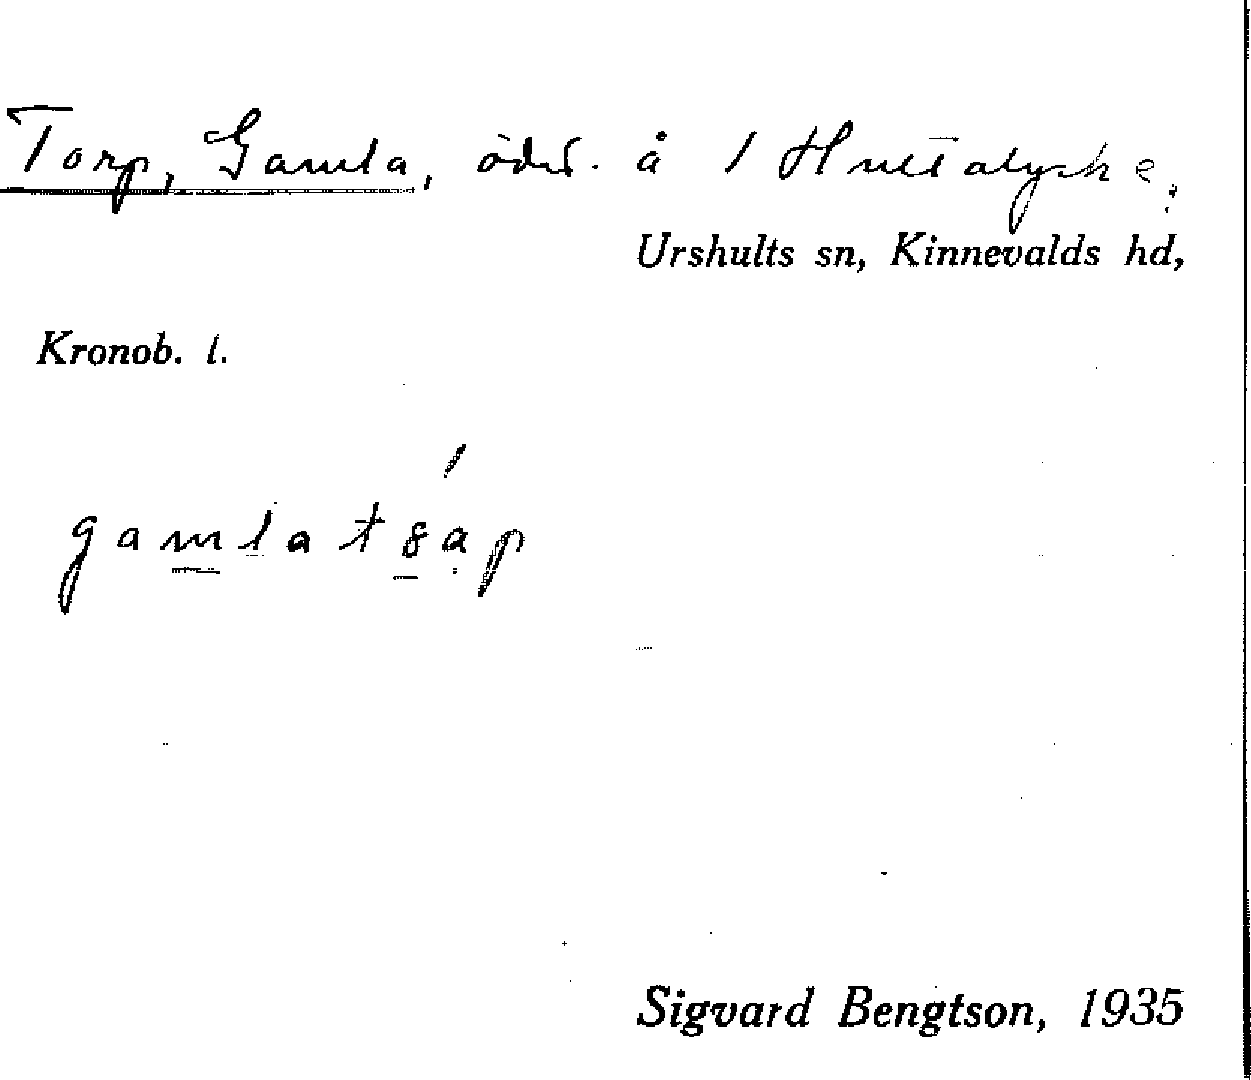 Torp, Gamla, öde. å 1 Hultalycke,
Urshults sn, Kinnevalds hd,
Kronob. l.
Sigvard Bengtson, 1935